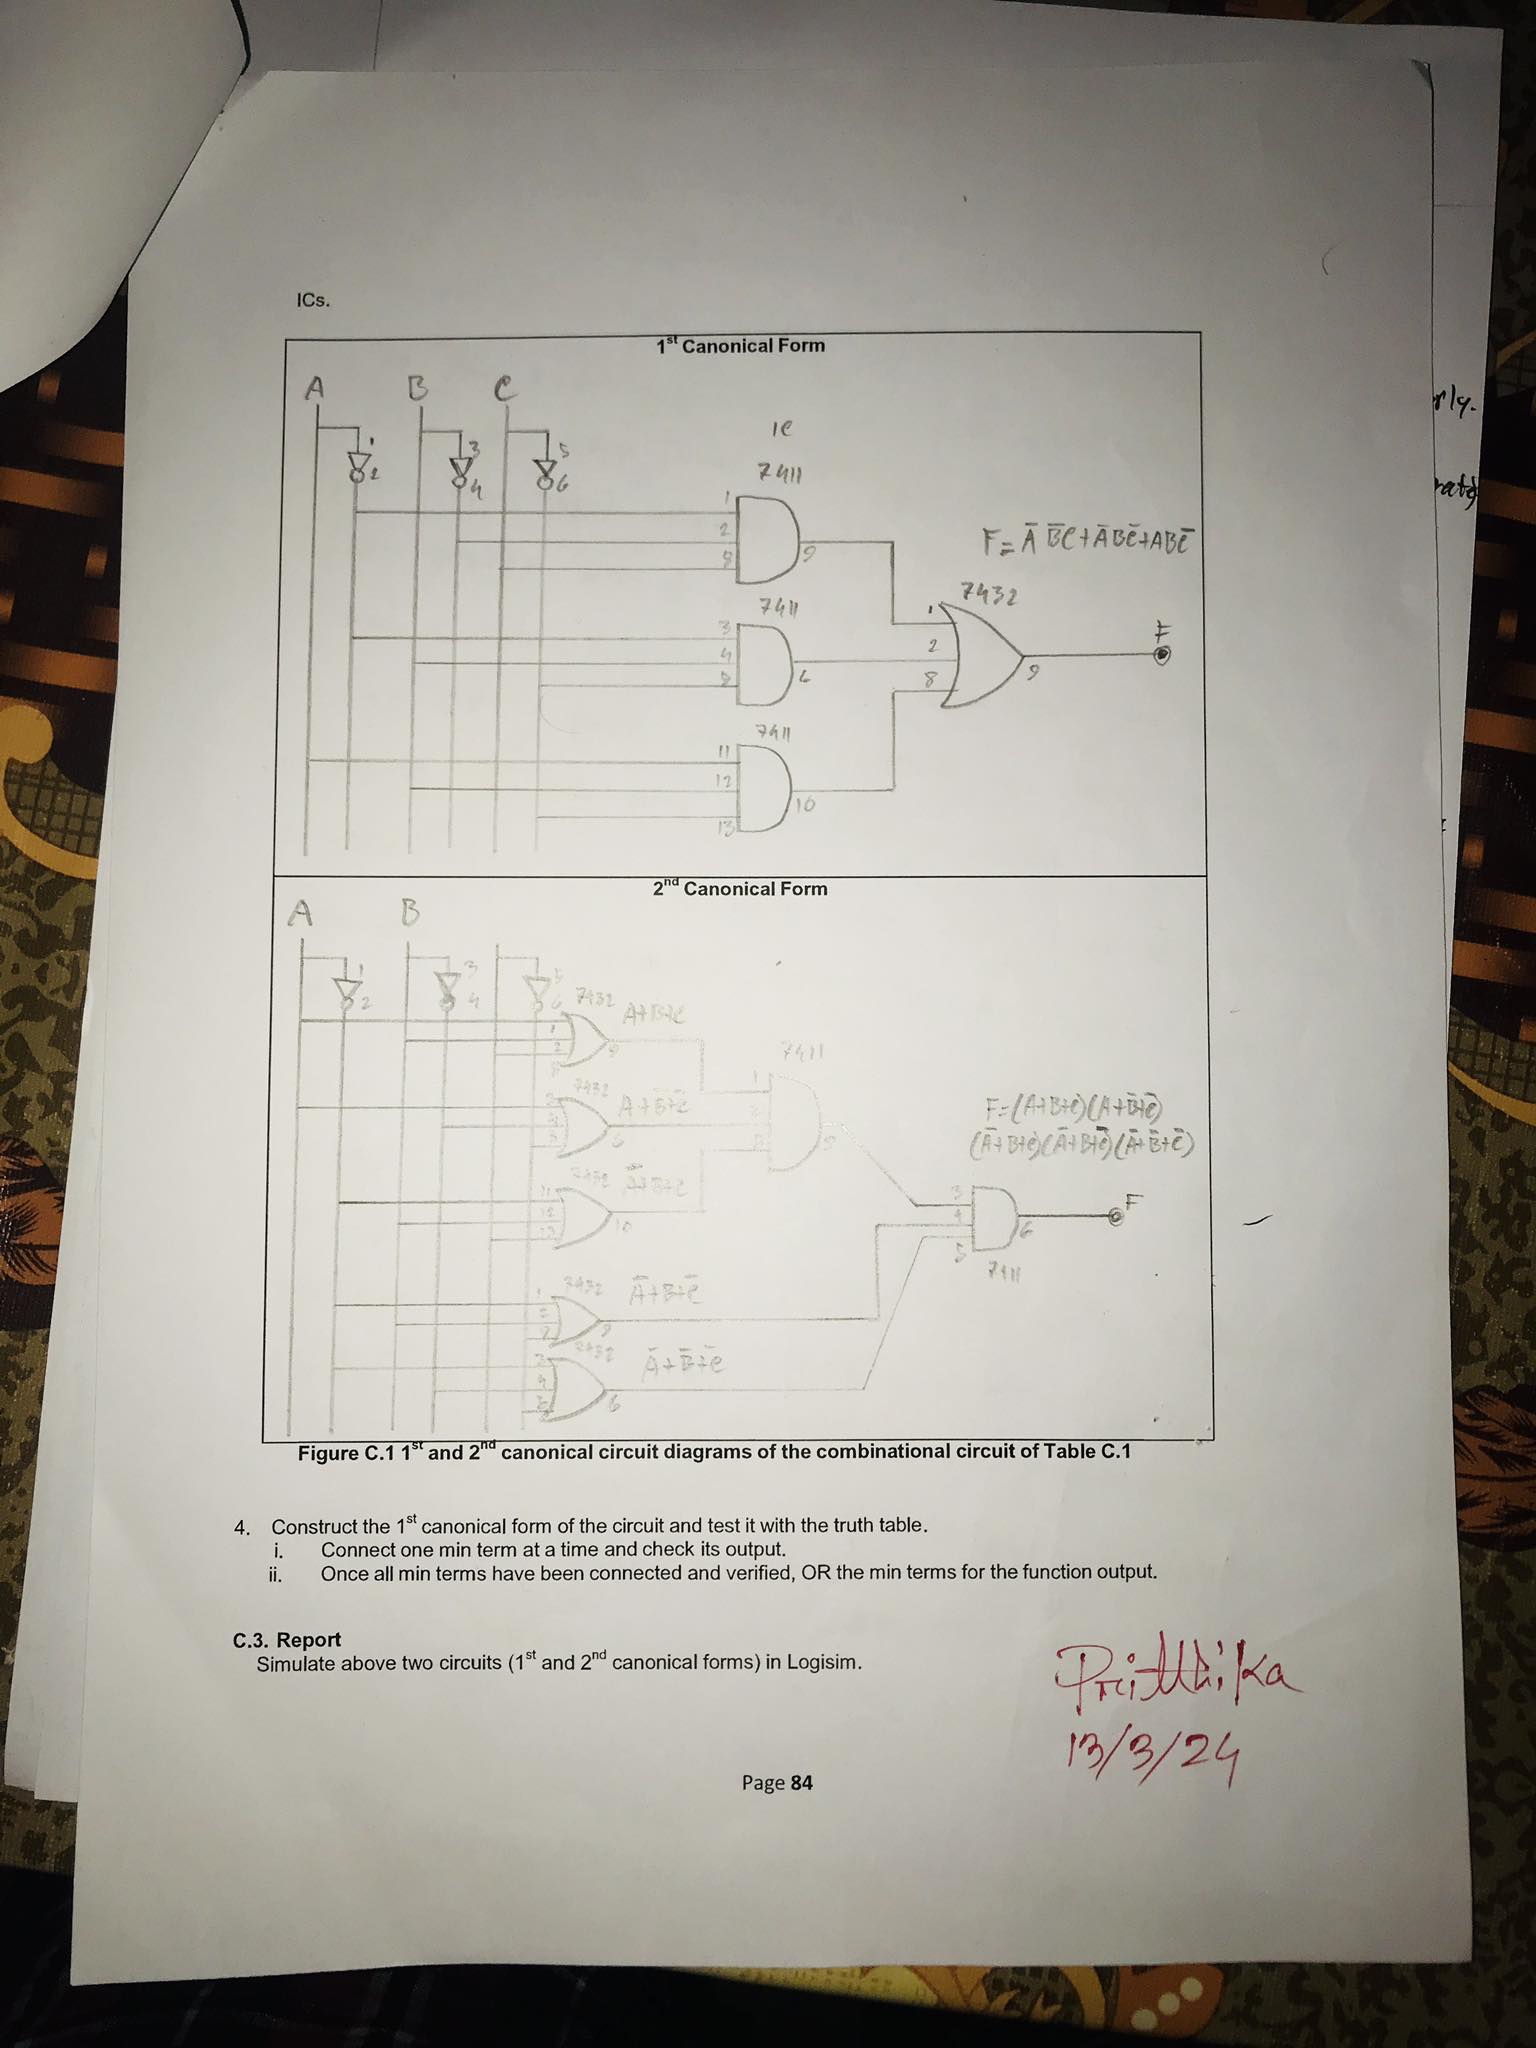 ICs.
1st Canonical Form
A B C
1 3 5
2 4 6
IC
7411
1
2
9
F = A̅ B̅C + A̅BC̅ + ABC̅
7411
7432
3
4
6
1
2
8
9
F
7411
11
12
13
10
2nd Canonical Form
A B
1 3 5
2 4 6
7432 A+B+C
7411
7432 A+B̅+C̅
F = (A+B+C)(A+B̅+C̅)
(A̅+B+C)(A̅+B+C̅)(A̅+B̅+C̅)
7432 A̅+B+C
11
12
13
10
3
4
5
6
F
7411
7432 A̅+B+C̅
7432 A̅+B̅+C̅
6
Figure C.1 1st and 2nd canonical circuit diagrams of the combinational circuit of Table C.1
4. Construct the 1st canonical form of the circuit and test it with the truth table.
i. Connect one min term at a time and check its output.
ii. Once all min terms have been connected and verified, OR the min terms for the function output.
C.3. Report
Simulate above two circuits (1st and 2nd canonical forms) in Logisim.
Prithika
13/3/24
Page 84